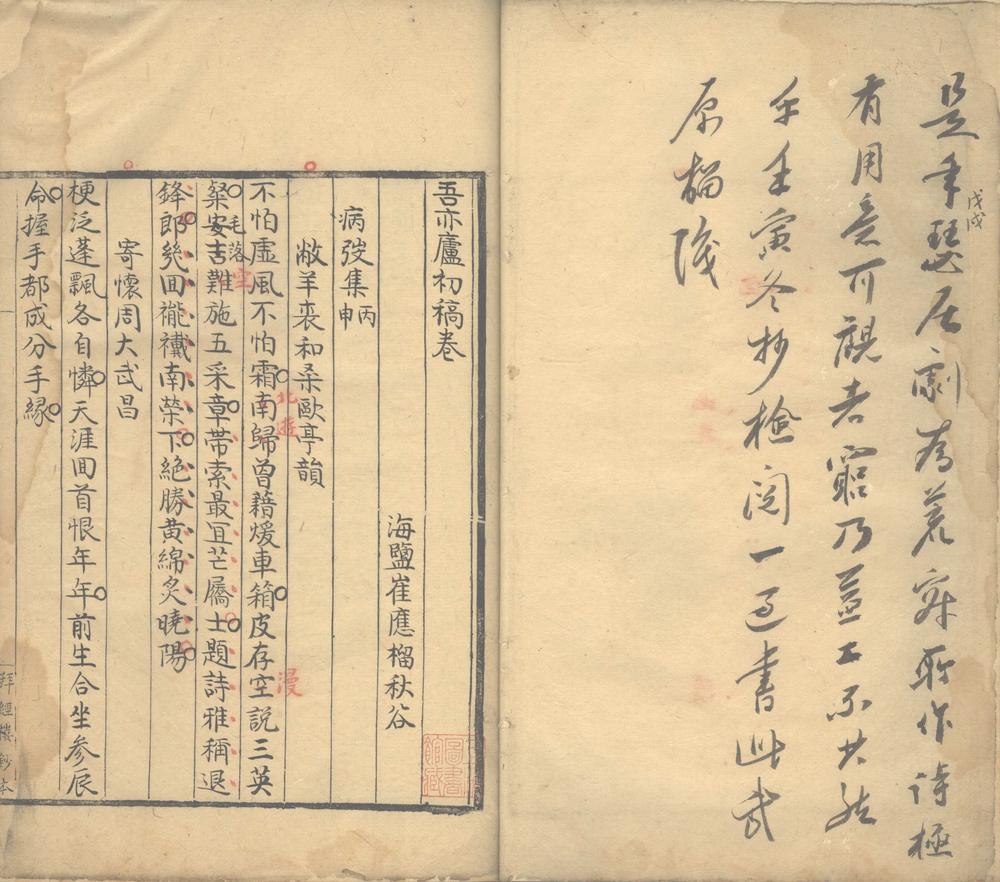 是年瑟居劇為荒寂耶作詩極
戊戌
有用意可觀者窮乃益工不其然
乎壬寅冬抄檢閱一過書此武
原榴
吾亦廬初稿卷
海鹽崔應榴秋谷
病㢸集丙申
敝羊裘和桑歐亭韻
不怕虛風不怕霜南歸曾藉煖車箱皮存空説三英
北遊
漫
粲安吉難施五采章帶索最宜芒屩士題詩雅稱退
毛落
空
鋒郎幾回襱襶南榮下絶勝黄綿炙曉陽
寄懷周大武昌
梗泛蓬飄各自憐天涯回首恨年年前生合坐参辰
命握手都成分手緣
拜經樓鈔本